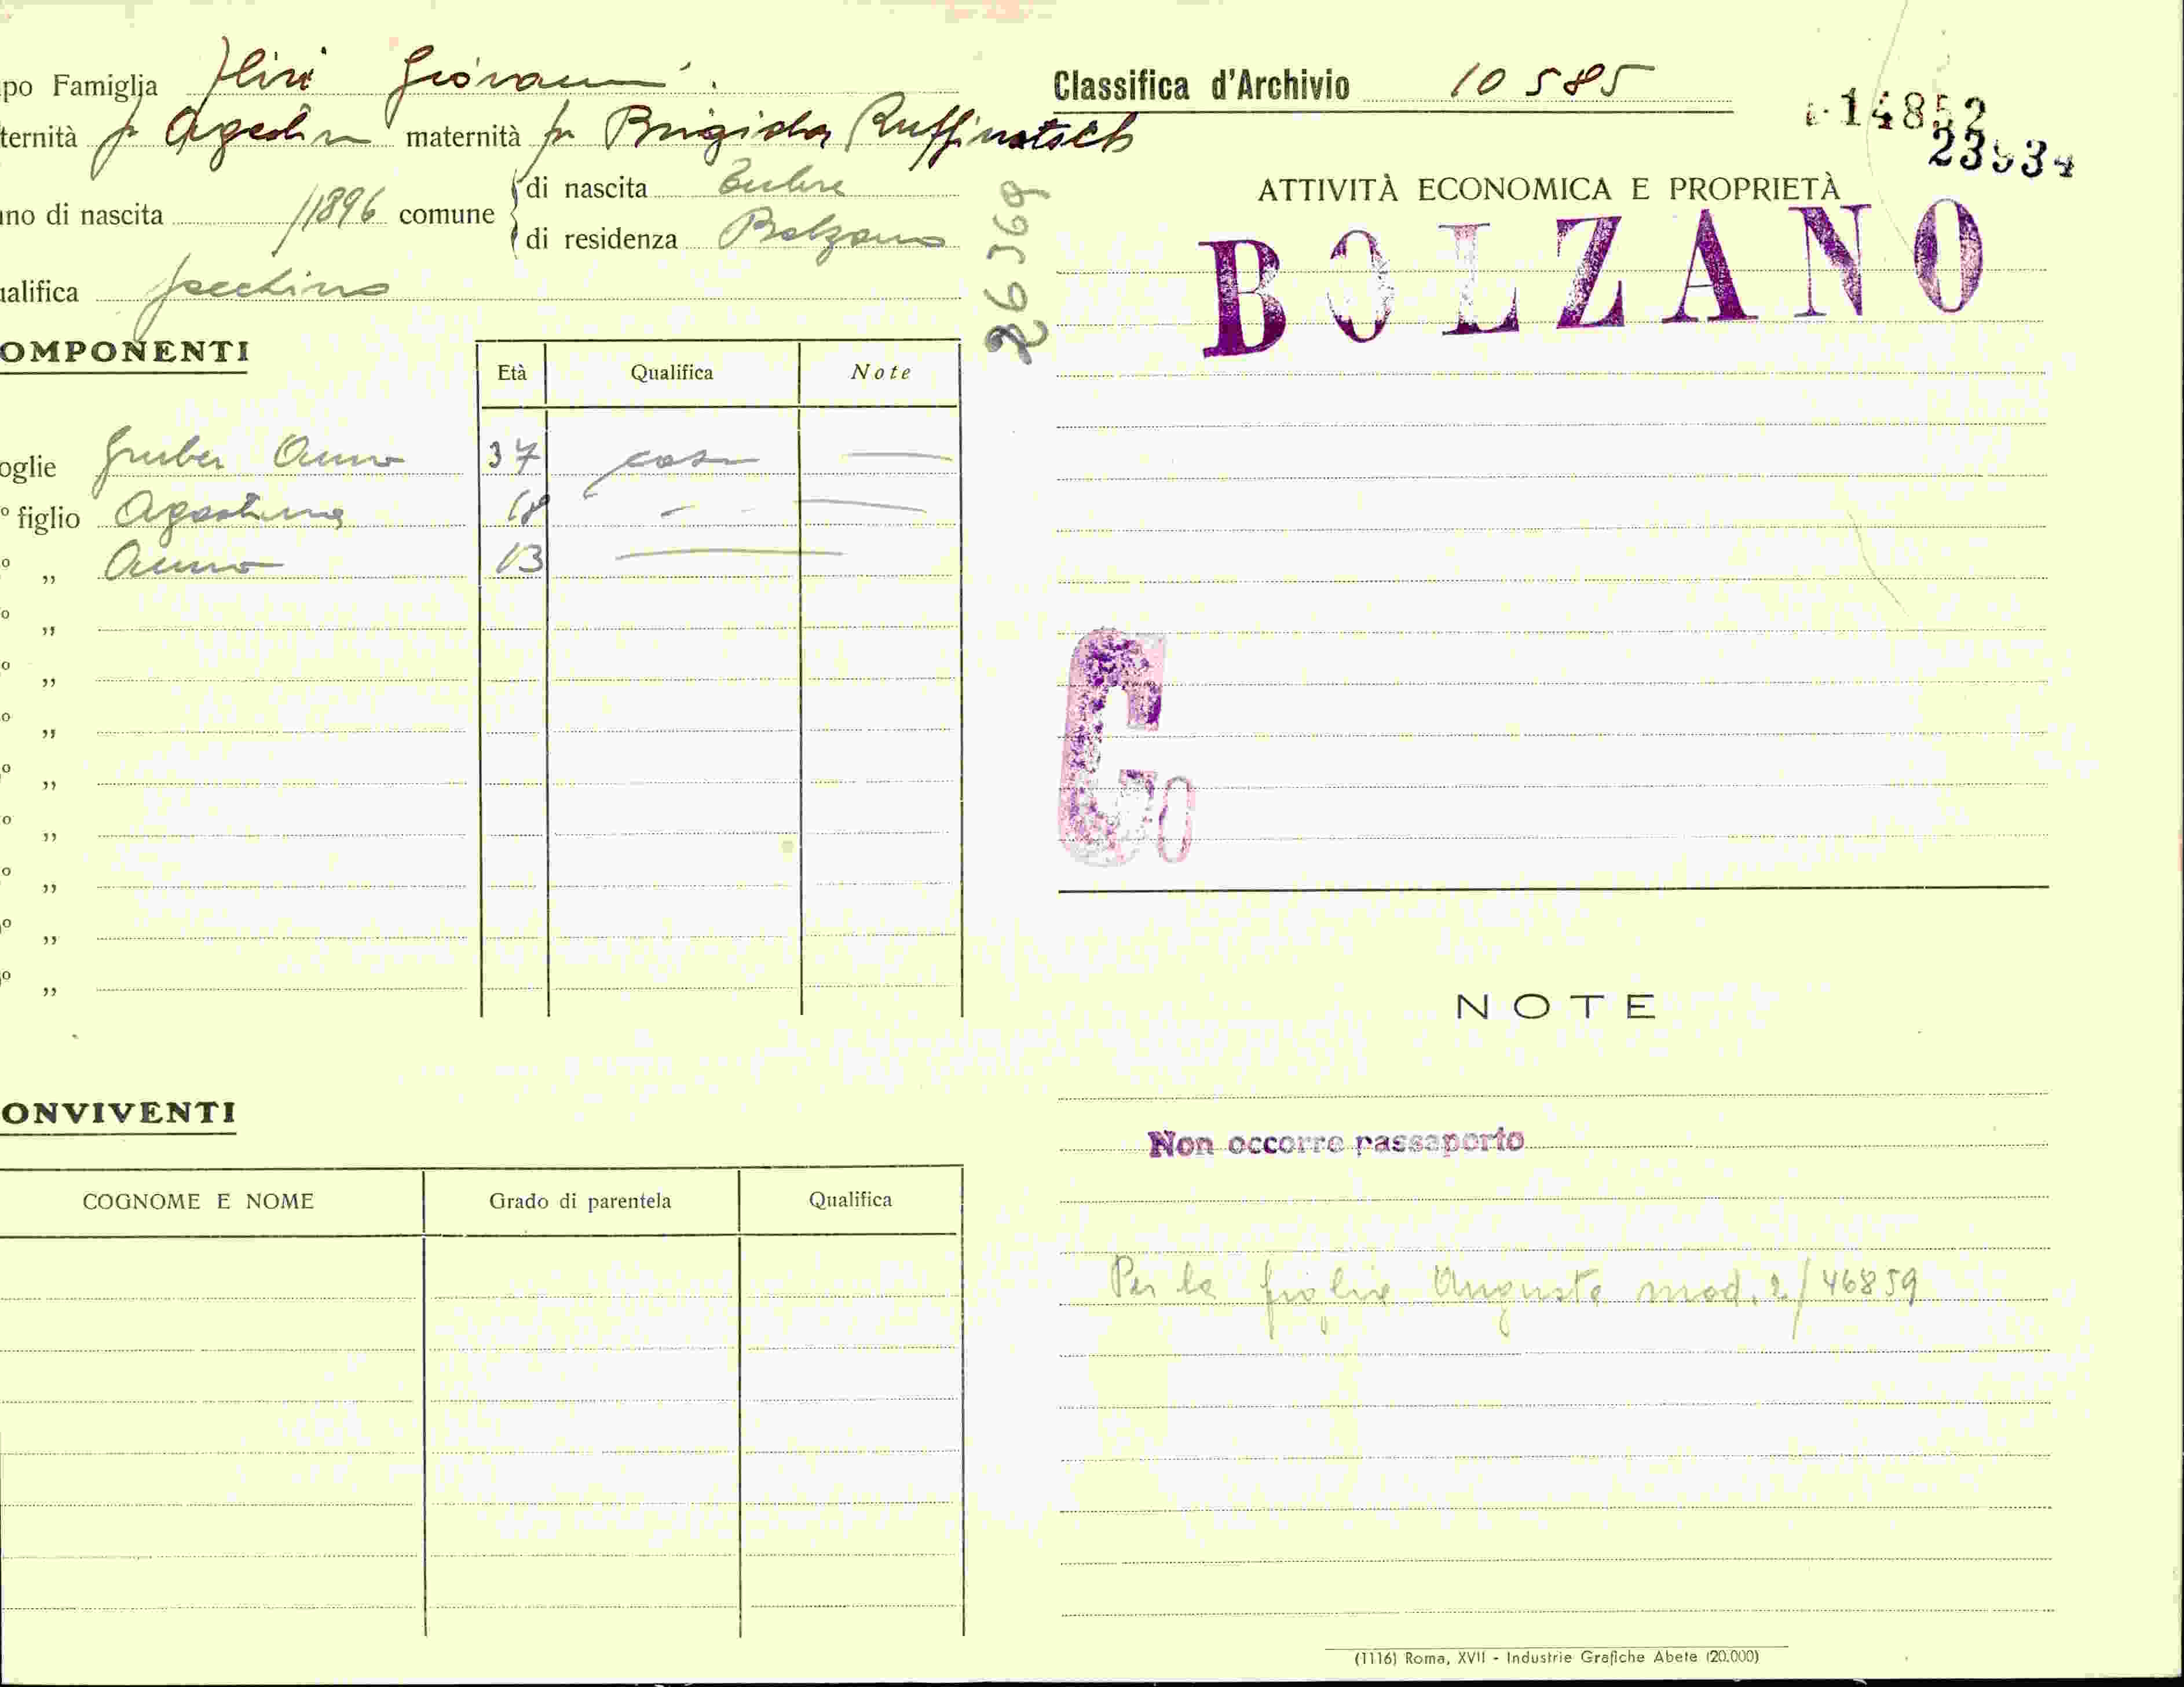 po Famiglia Giovanni
ternità fu Agostino maternità fu Brigida Ruffinatsch
no di nascita 1896 comune
di nascita Tubre
di residenza Bolzano
alifica facchino
OMPONENTI
Età Qualifica Note
oglie Gruber Anna 37 casa
° figlio Agostino 18
° „ Anna 13
° „
° „
° „
° „
° „
° „
° „
° „
ONVIVENTI
COGNOME E NOME Grado di parentela Qualifica
Classifica d'Archivio 10585
14852
23934
26369
ATTIVITÀ ECONOMICA E PROPRIETÀ
BOLZANO
G
NOTE
Non occorre passaporto
Per la figlia Augusta mod. 2/46859
(1116) Roma, XVII - Industrie Grafiche Abete (20.000)